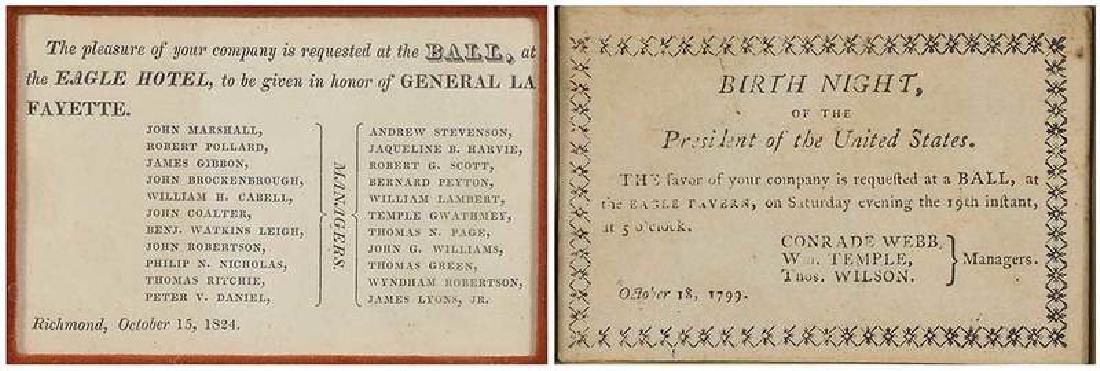 The pleasure of your company is requested at the BALL, at
the EAGLE HOTEL, to be given in honor of GENERAL LA
FAYETTE.
JOHN MARSHALL,
ROBERT POLLARD,
JAMES GIBBON,
JOHN BROCKENBROUGH,
WILLIAM H. CABELL,
JOHN COALTER,
BENJ. WATKINS LEIGH,
JOHN ROBERTSON,
PHILIP N. NICHOLAS,
THOMAS RITCHIE,
PETER V. DANIEL,
MANAGERS.
ANDREW STEVENSON,
JAQUELINE B. HARVIE,
ROBERT G. SCOTT,
BERNARD PEYTON,
WILLIAM LAMBERT,
TEMPLE GWATHMEY,
THOMAS N. PAGE,
JOHN G. WILLIAMS,
THOMAS GREEN,
WYNDHAM ROBERTSON,
JAMES LYONS, JR.
Richmond, October 15, 1824.
BIRTH NIGHT,
OF THE
President of the United States.
THE favor of your company is requeſted at a BALL, at
the EAGLE TAVERN, on Saturday evening the 19th inſtant,
at 5 o'clock.
CONRADE WEBB,
Wm. TEMPLE,
Thos. WILSON.
Managers.
October 18, 1799.